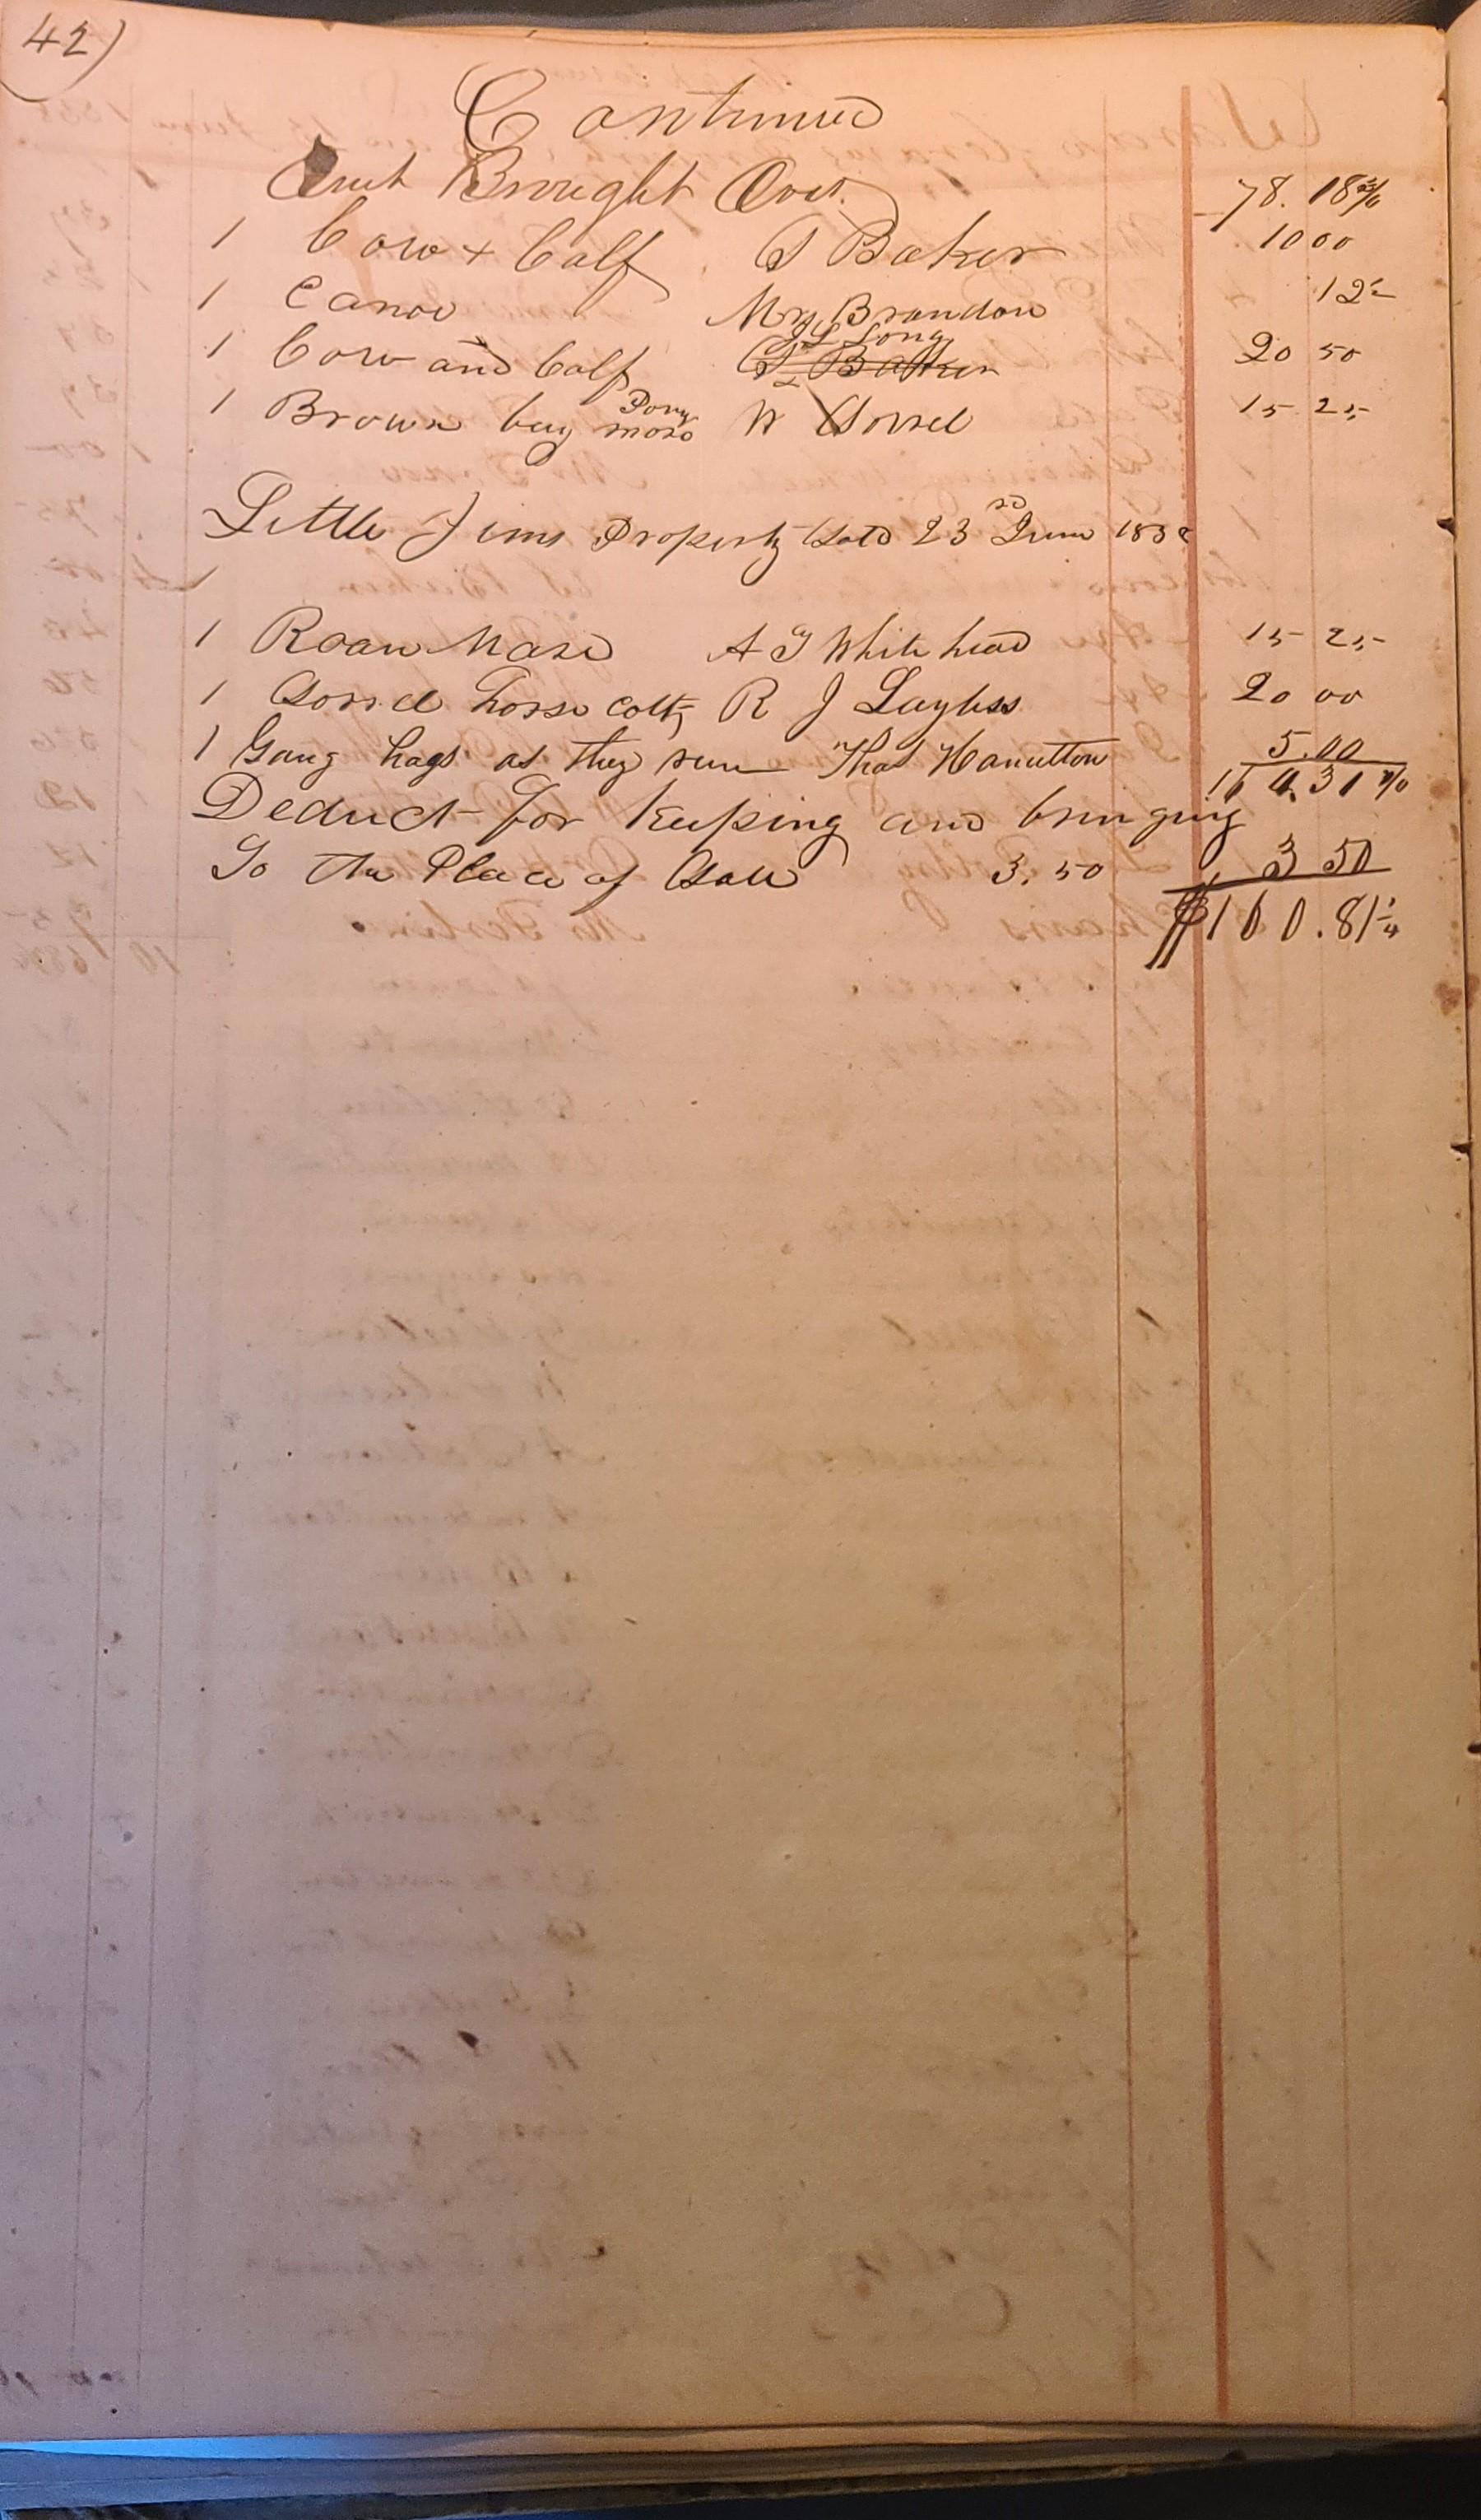 42)
Continued
Amt Brought Over 78. 18 3/4
1 Cow + Calf S Baker 10 00
1 Canoe Mrs Brandon 12 1/2
J L Long
1 Cow and Calf S Baker 20 50
Pony
1 Brown bay mare W Sorrel 15 25
Little Jims Property Sold 23rd June 1838
1
1 Roan Mare A G Whitehead 15 25
1 Sorrel horse colt R J Layless 20 00
1 Gang hogs as they run Thos Hamilton 5.00
164.31
Deduct for keeping and bringing
To the Place of Sale 3.50 3 50
$160.81 1/4